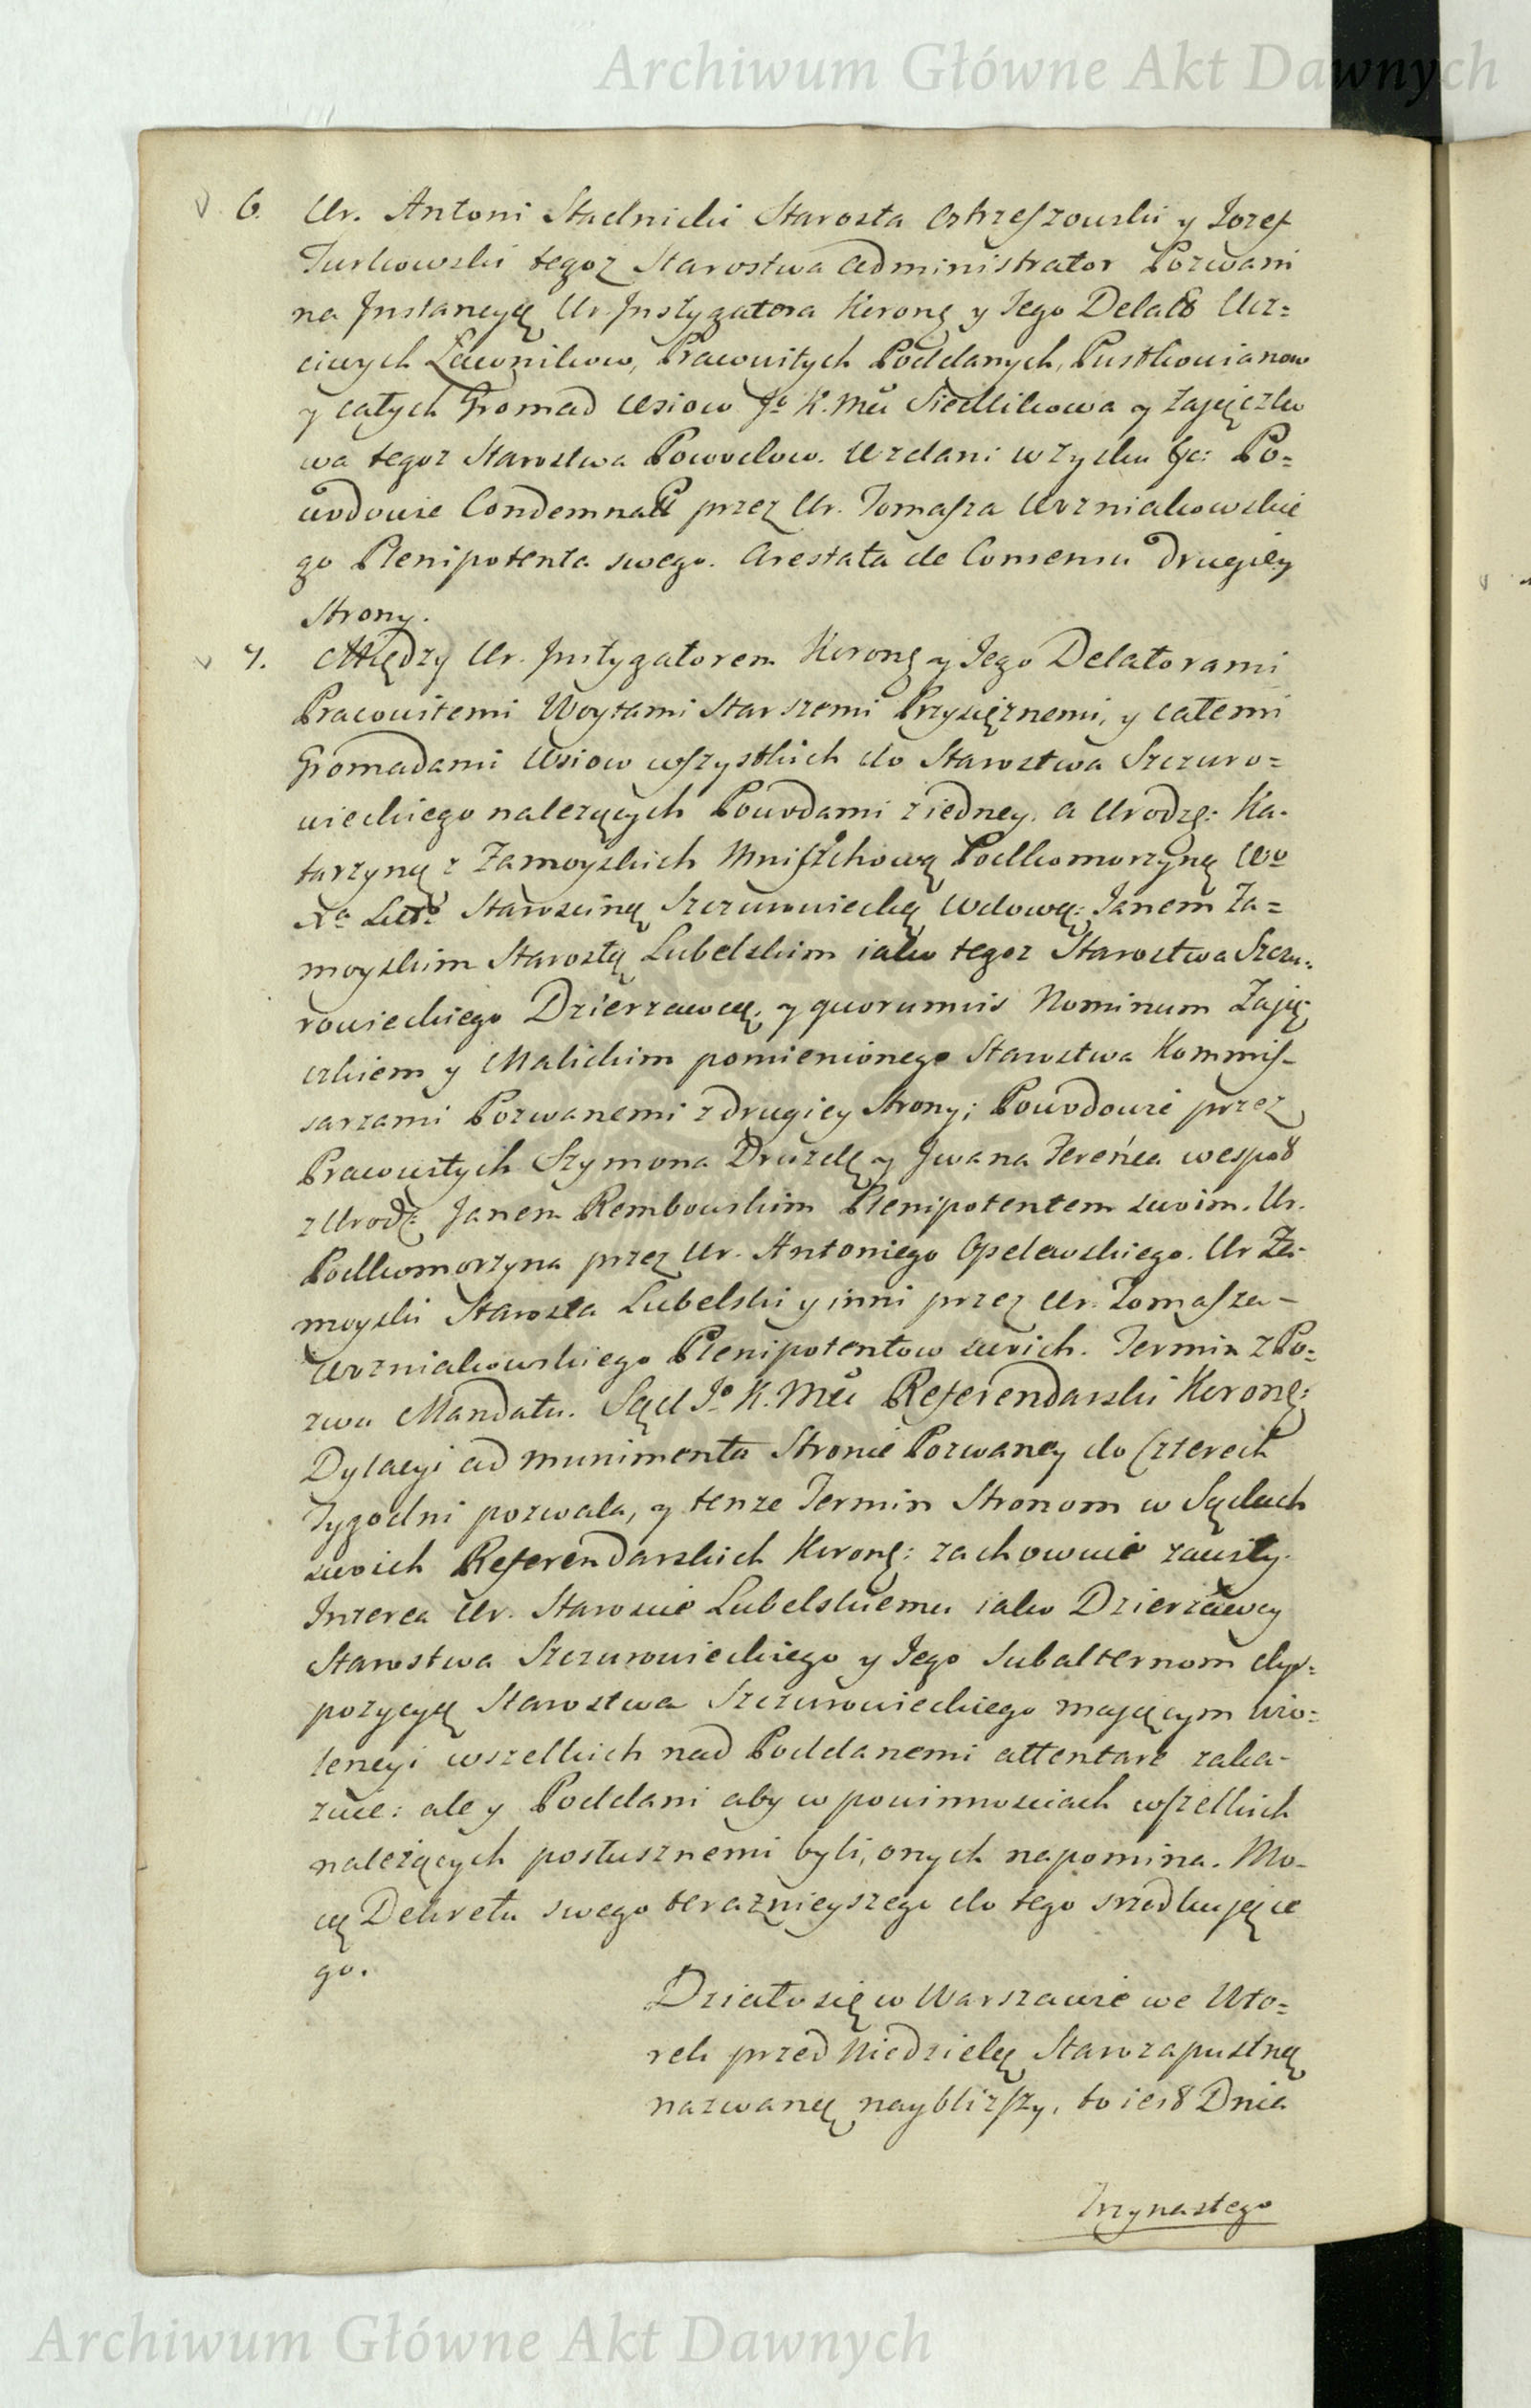 Archiwum Główne Akt Dawnych
6. Ur. Antoni Stadnicki Starosta Ostrzeszowski y Jozef
Turkowski tegoz Starostwa Administrator Pozwani
na Instancyą Ur. Instygatora Koronę y Jego Delato Ucz=
ciwych Ławnikow, Pracowitych Poddanych, Pustkowianow
y całych Gromad Wsiow Jo K. Mci Siedlikowa y Zajączko
wa tegoz Starostwa Powodow. Wzdani w Zysku &c: Po=
wodowie Condemnatt przez Ur. Tomasza Wozniakowskie
go Plenipotenta swego. Arestata de Consensu drugiey
Strony.
7. Między Ur. Instygatorem Koronę y Jego Delatorami
Pracowitemi Woytami Starszemi Przysięznemi, y całemi
Gromadami Wsiow wszystkich do Starostwa Szczuro=
wieckiego nalezących Powodami z iedney, a Urodzę: Ka-
tarzyną z Zamoyskich Mniszchową Podkomorzyną Wo
Xa Litto Starościną Szczurowiecką Wdową: Janem Za=
moyskim Starostą Lubelskim iako tegoz Starostwa Szczu-
rowieckiego Dzierzawcą, y quorumvis Nominum Zają-
czkiem y Malickim pomienionego Starostwa Kommis-
sarzami Pozwanemi z drugiey Strony; Powodowie przez
Pracowitych Szymona Druzdę y Iwana Tereńca wespoł
z Urodz: Janem Rembowskim Plenipotentem swoim. Ur.
Podkomorzyna przez Ur. Antoniego Opelewskiego. Ur Za-
moyski Starosta Lubelski y inni przez Ur. Tomasza-
Wozniakowskiego Plenipotentow swoich. Termin z Po=
zwu Mandatu. Sąd Jo K. Mci Referendarski Koronę:
Dylacyi ad munimenta Stronie Pozwaney do Czterech
Tygodni pozwala, y tenze Termin Stronom w Sądach
swoich Referendarskich Koronę: zachowuie zawisły.
Interea Ur. Staroscie Lubelskiemu iako Dzierzawcy
Starostwa Szczurowieckiego y Jego Subalternom dys=
pozycyą Starostwa Szczurowieckiego maiącym wio=
lencyi wszelkich nad Poddanemi attentare zaka-
zuie: ale y Poddani aby w powinnosciach wszelkich
nalezących posłusznemi byli, onych napomina. Mo-
cą Dekretu swego teraznieyszego do tego srzodkuiące
go.
Działo się w Warszawie we Wto=
rek przed Niedzielą Starozapustną
nazwaną nayblizszy, to iest Dnia
Trzynastego
Archiwum Główne Akt Dawnych